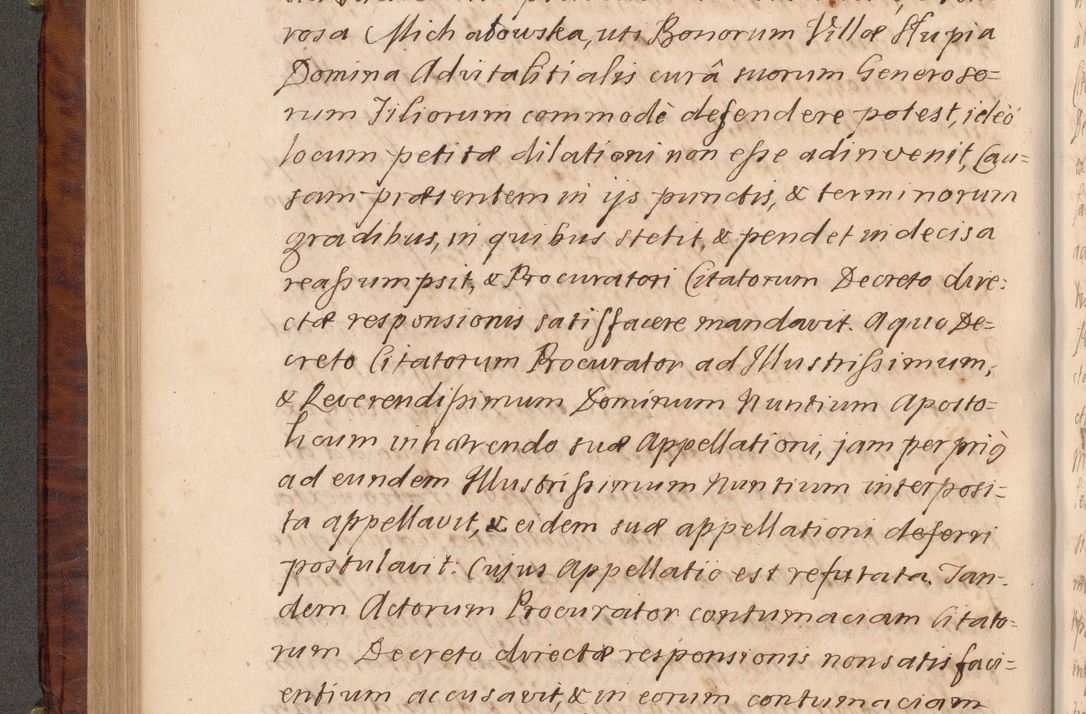 rosa Michałowska, uti Bonorum Villæ Słupia
Domina Advitalitialis curâ suorum Generoso=
rum Filiorum commodè defendere potest, ideò
locum petitæ dilationi non eſse adinvenit, Cau=
sam præsentem in ijs punctis, & terminorum
gradibus, in quibus stetit, & pendet indecisa
reaſsumpsit, & Procuratori Citatorum Decreto dire=
ctæ responsionis satisfacere mandavit. A quo De=
creto Citatorum Procurator ad Illustriſsimum,
& Reverendiſsimum Dominum Nuntium Aposto=
licum inhærendo suæ Appellationi, jam per priùs
ad eundem Illustriſsimum Nuntium interposi=
ta appellavit, & eidem suæ appellationi deferri
postulavit. Cujus Appellatio est refutata. Tan=
dem Actorum Procurator contumaciam Citato=
rum Decreto directæ responsionis non satisfaci=
entium accusavit, & in eorum contumaciam